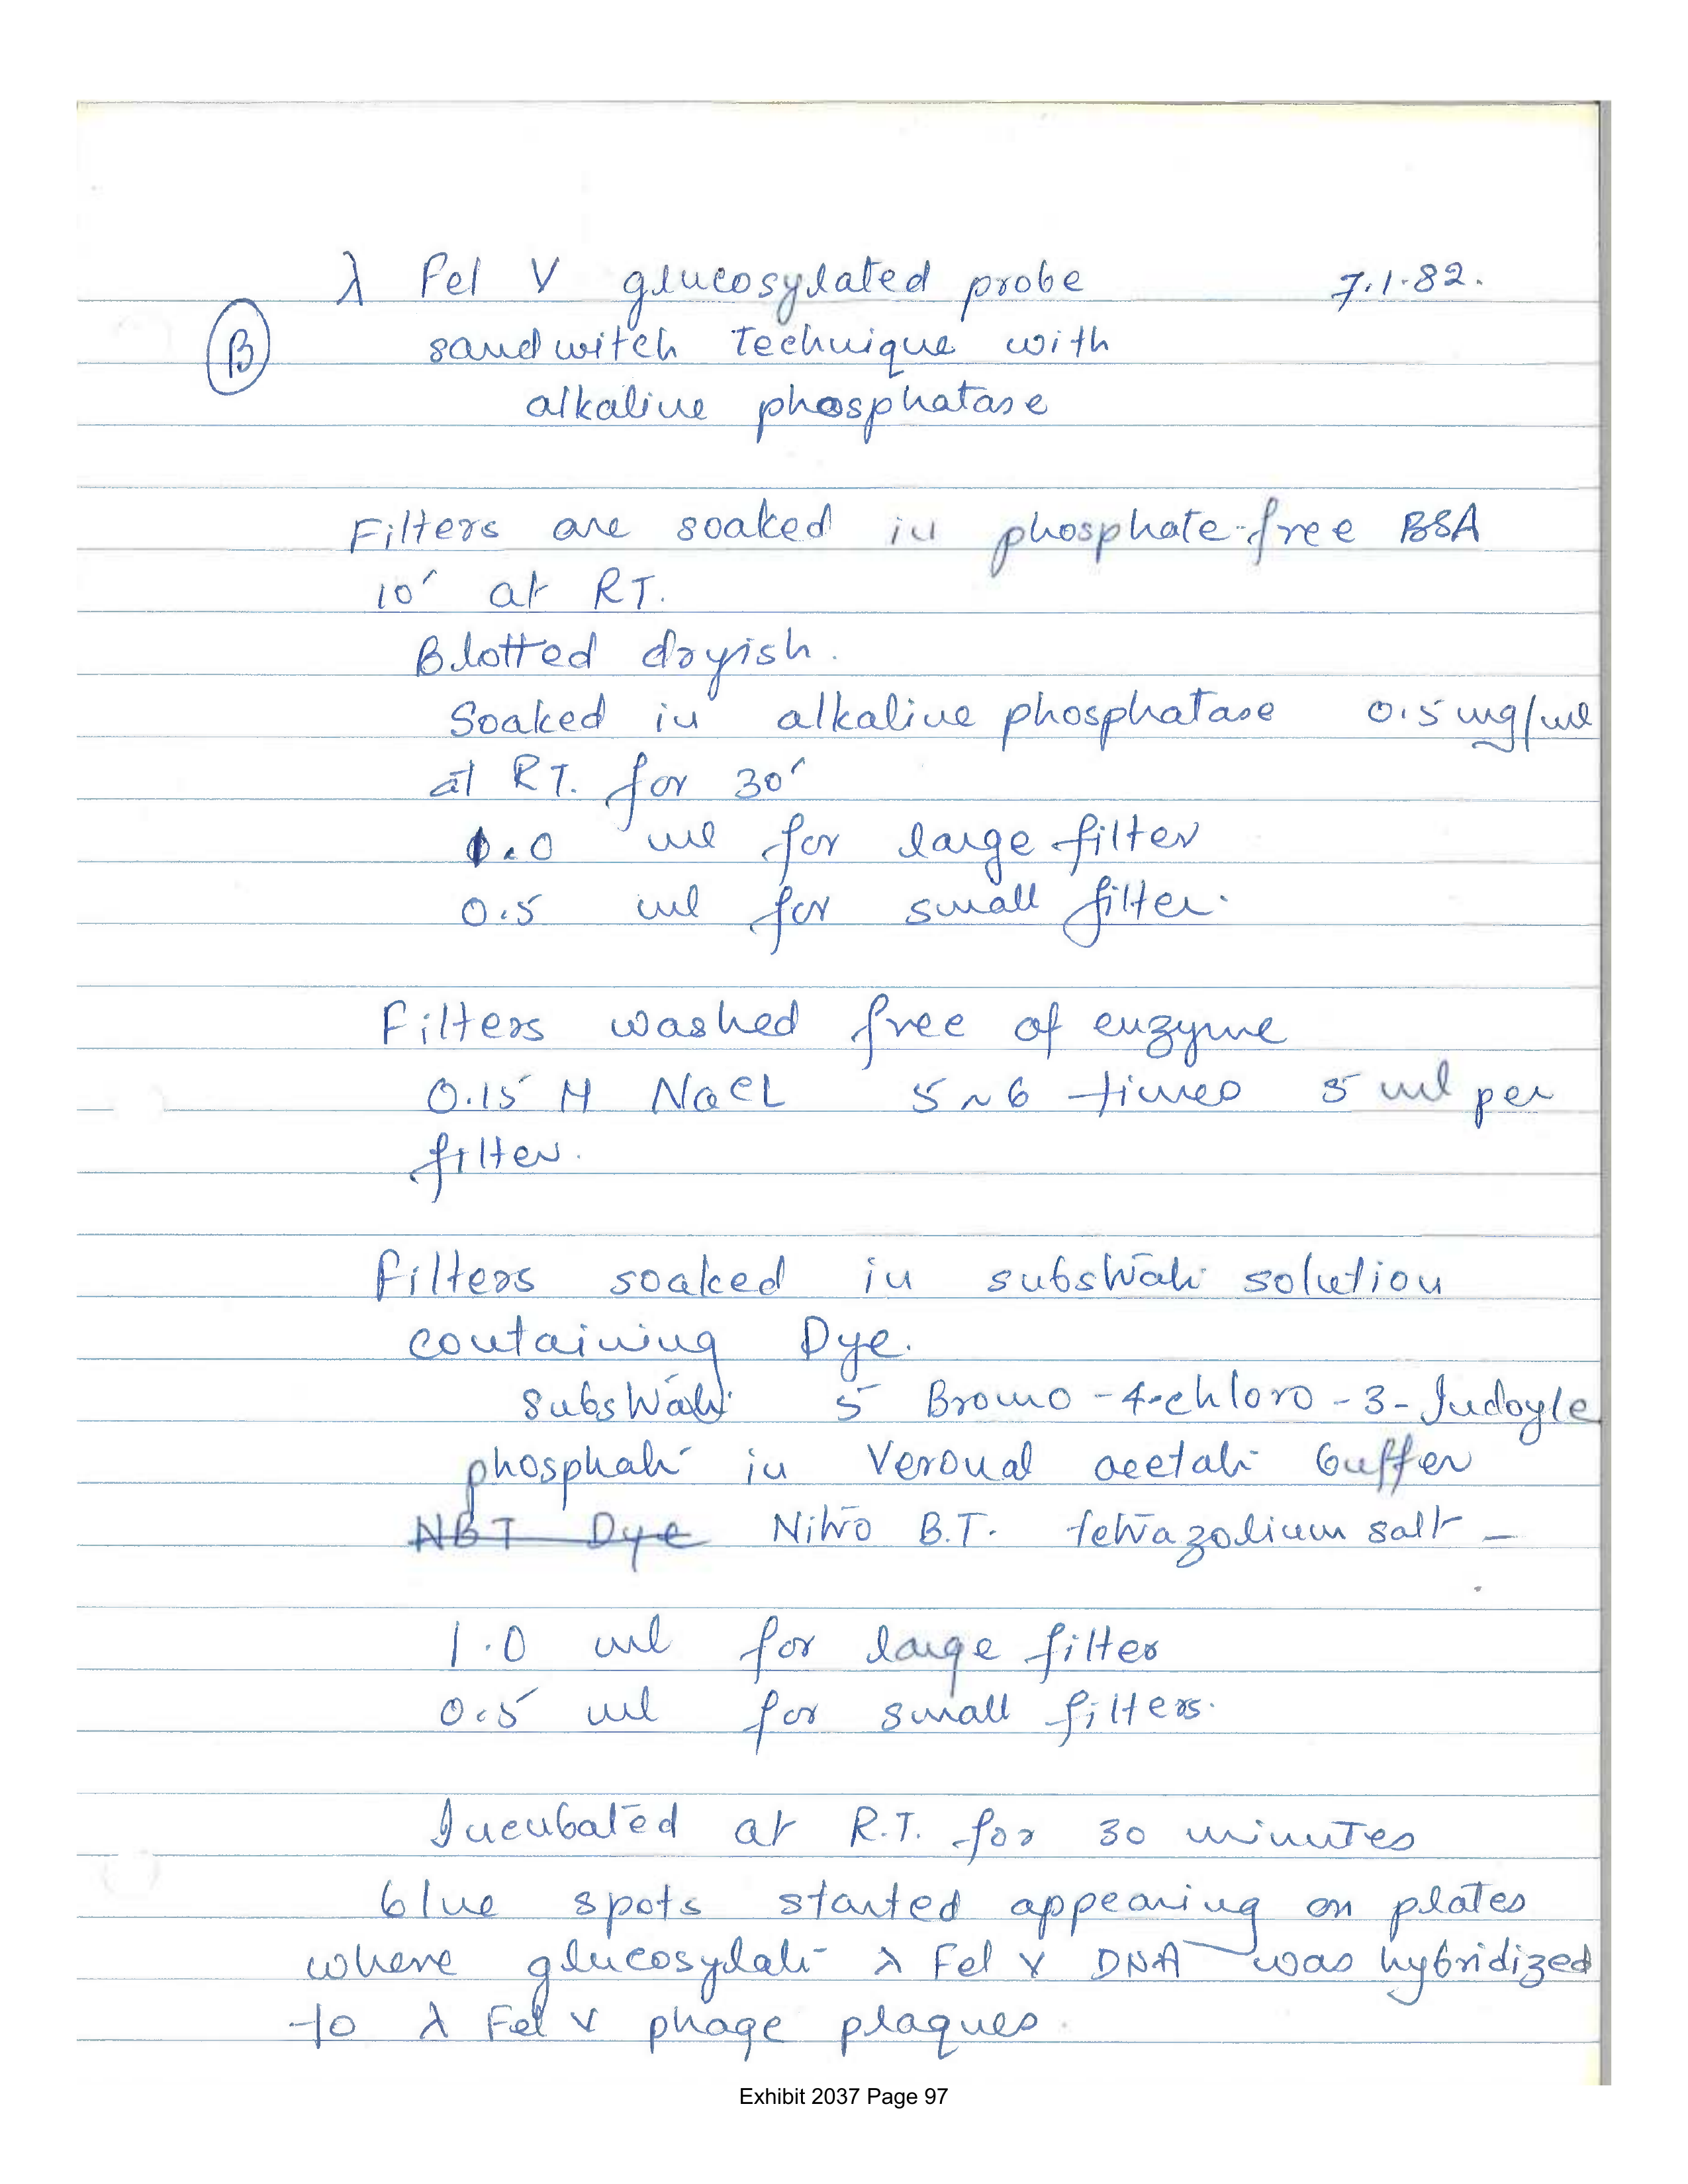 λ Fel V glucosylated probe 7.1.82.
(B) sandwitch technique with
alkaline phosphatase
Filters are soaked in phosphate-free BSA
10′ at RT.
Blotted dryish.
Soaked in alkaline phosphatase 0.5 mg/ml
at RT. for 30′
1.0 ml for large filter
0.5 ml for small filter.
Filters washed free of enzyme
0.15 M NaCL 5~6 times 5 ml per
filter.
Filters soaked in substrate solution
containing Dye.
substrate 5 Bromo-4-chloro-3-Indoyle
phosphate in Veronal acetate buffer
NBT Dye Nitro B.T. tetrazolium salt –
1.0 ml for large filter
0.5 ml for small filters.
Incubated at R.T. for 30 minutes
blue spots started appearing on plates
where glucosylate λ Fel V DNA was hybridized
to λ Fel V phage plaques.
Exhibit 2037 Page 97